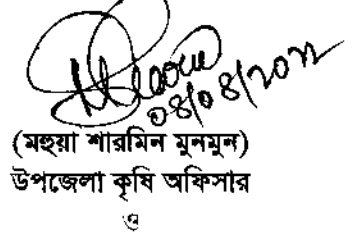 ০৪/০৪/২০২২
(মহুয়া শারমিন মুনমুন)
উপজেলা কৃষি অফিসার
ও